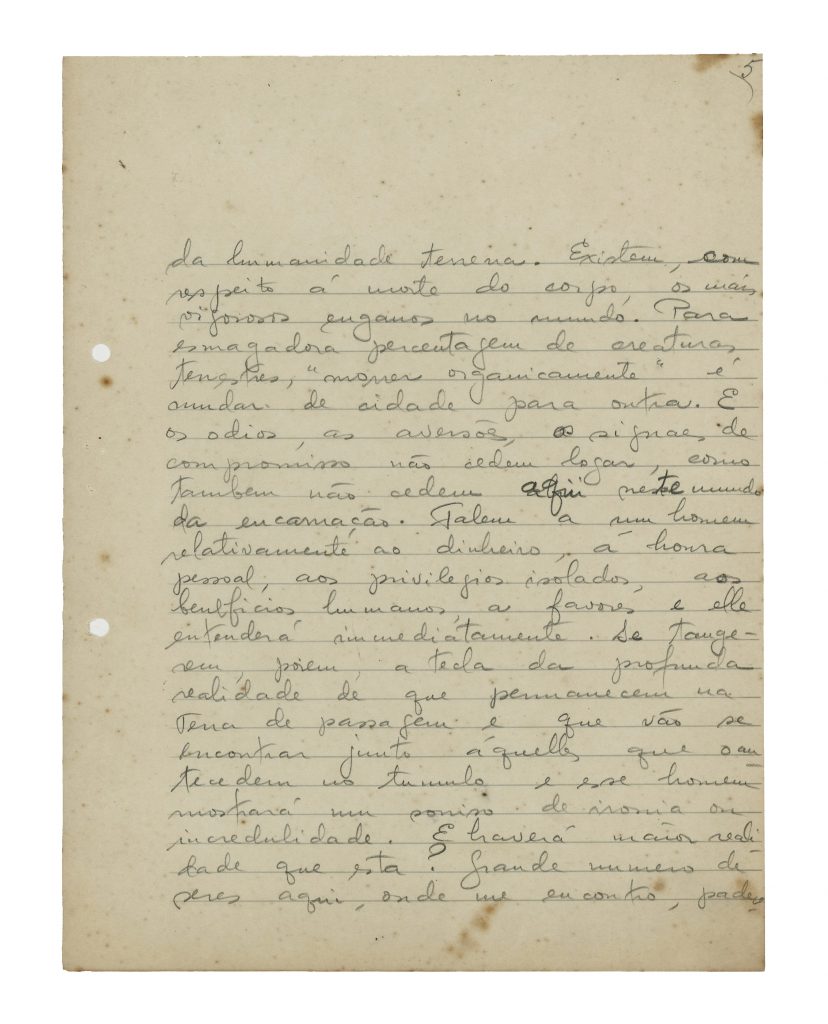 5
da humanidade terrena. Existem, com
respeito á morte do corpo, os mais
vigorosos enganos no mundo. Para
esmagadora percentagem de creaturas
terrestres, "morrer organicamente" é
mudar de cidade para outra. E
os odios, as aversões, os signaes de
compromisso não cedem logar, como
tambem não cedem aqui neste mundo
da encarnação. Falem a um homem
relativamente ao dinheiro, á honra
pessoal, aos privilegios isolados, aos
beneficios humanos, a favores e elle
entenderá immediatamente. Se tange-
rem, porem, a tecla da profunda
realidade de que permanecem na
Terra de passagem e que vão se
encontrar junto áquelles que o an
tecedem no tumulo e esse homem
mostrará um sorriso de ironia ou
incredulidade. E haverá maior reali
dade que esta? Grande numero de
seres aqui, onde me encontro, padece